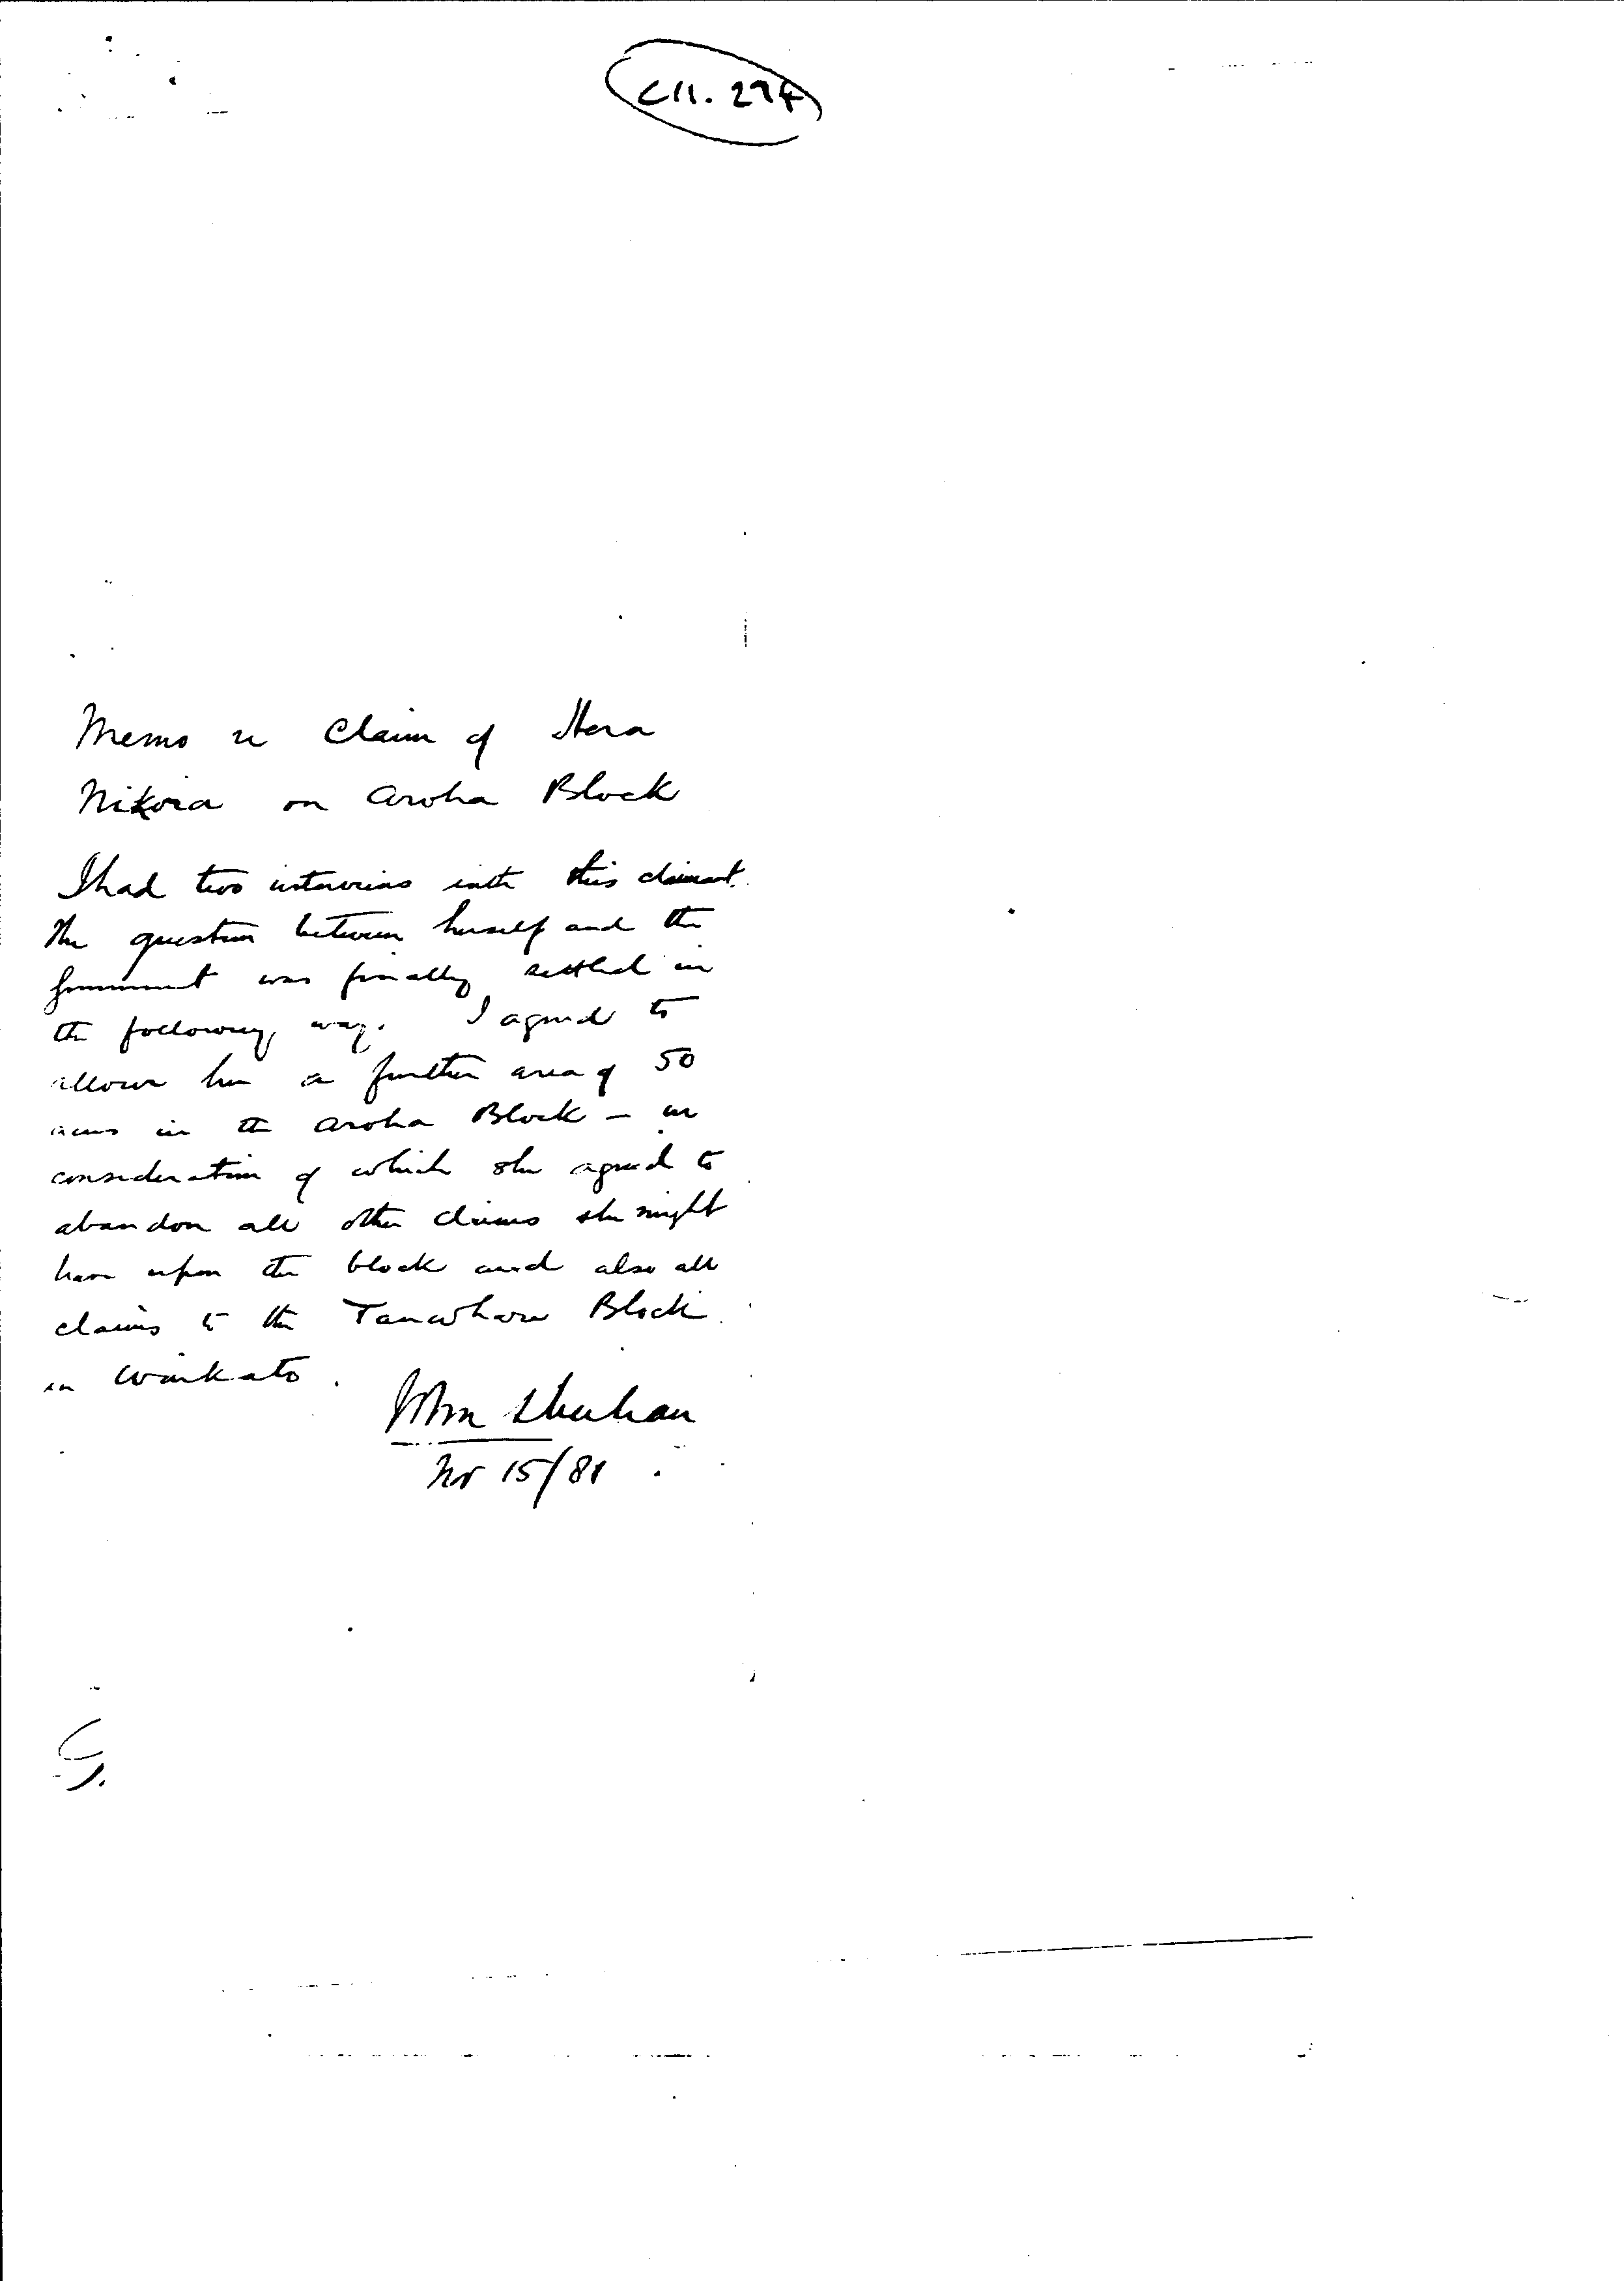 C11. 274
Memo re Claim of Hera
Nikora on Aroha Block
I had two interviews with this claimant.
The question between herself and the
Government was finally settled in
the following way. I agreed to
allow her a further area of 50
acres in the Aroha Block – in
consideration of which she agreed to
abandon all other claims she might
have upon the block and also all
claims to the Tauwhare Block
in Waikato.
John Sheehan
Nov 15/81